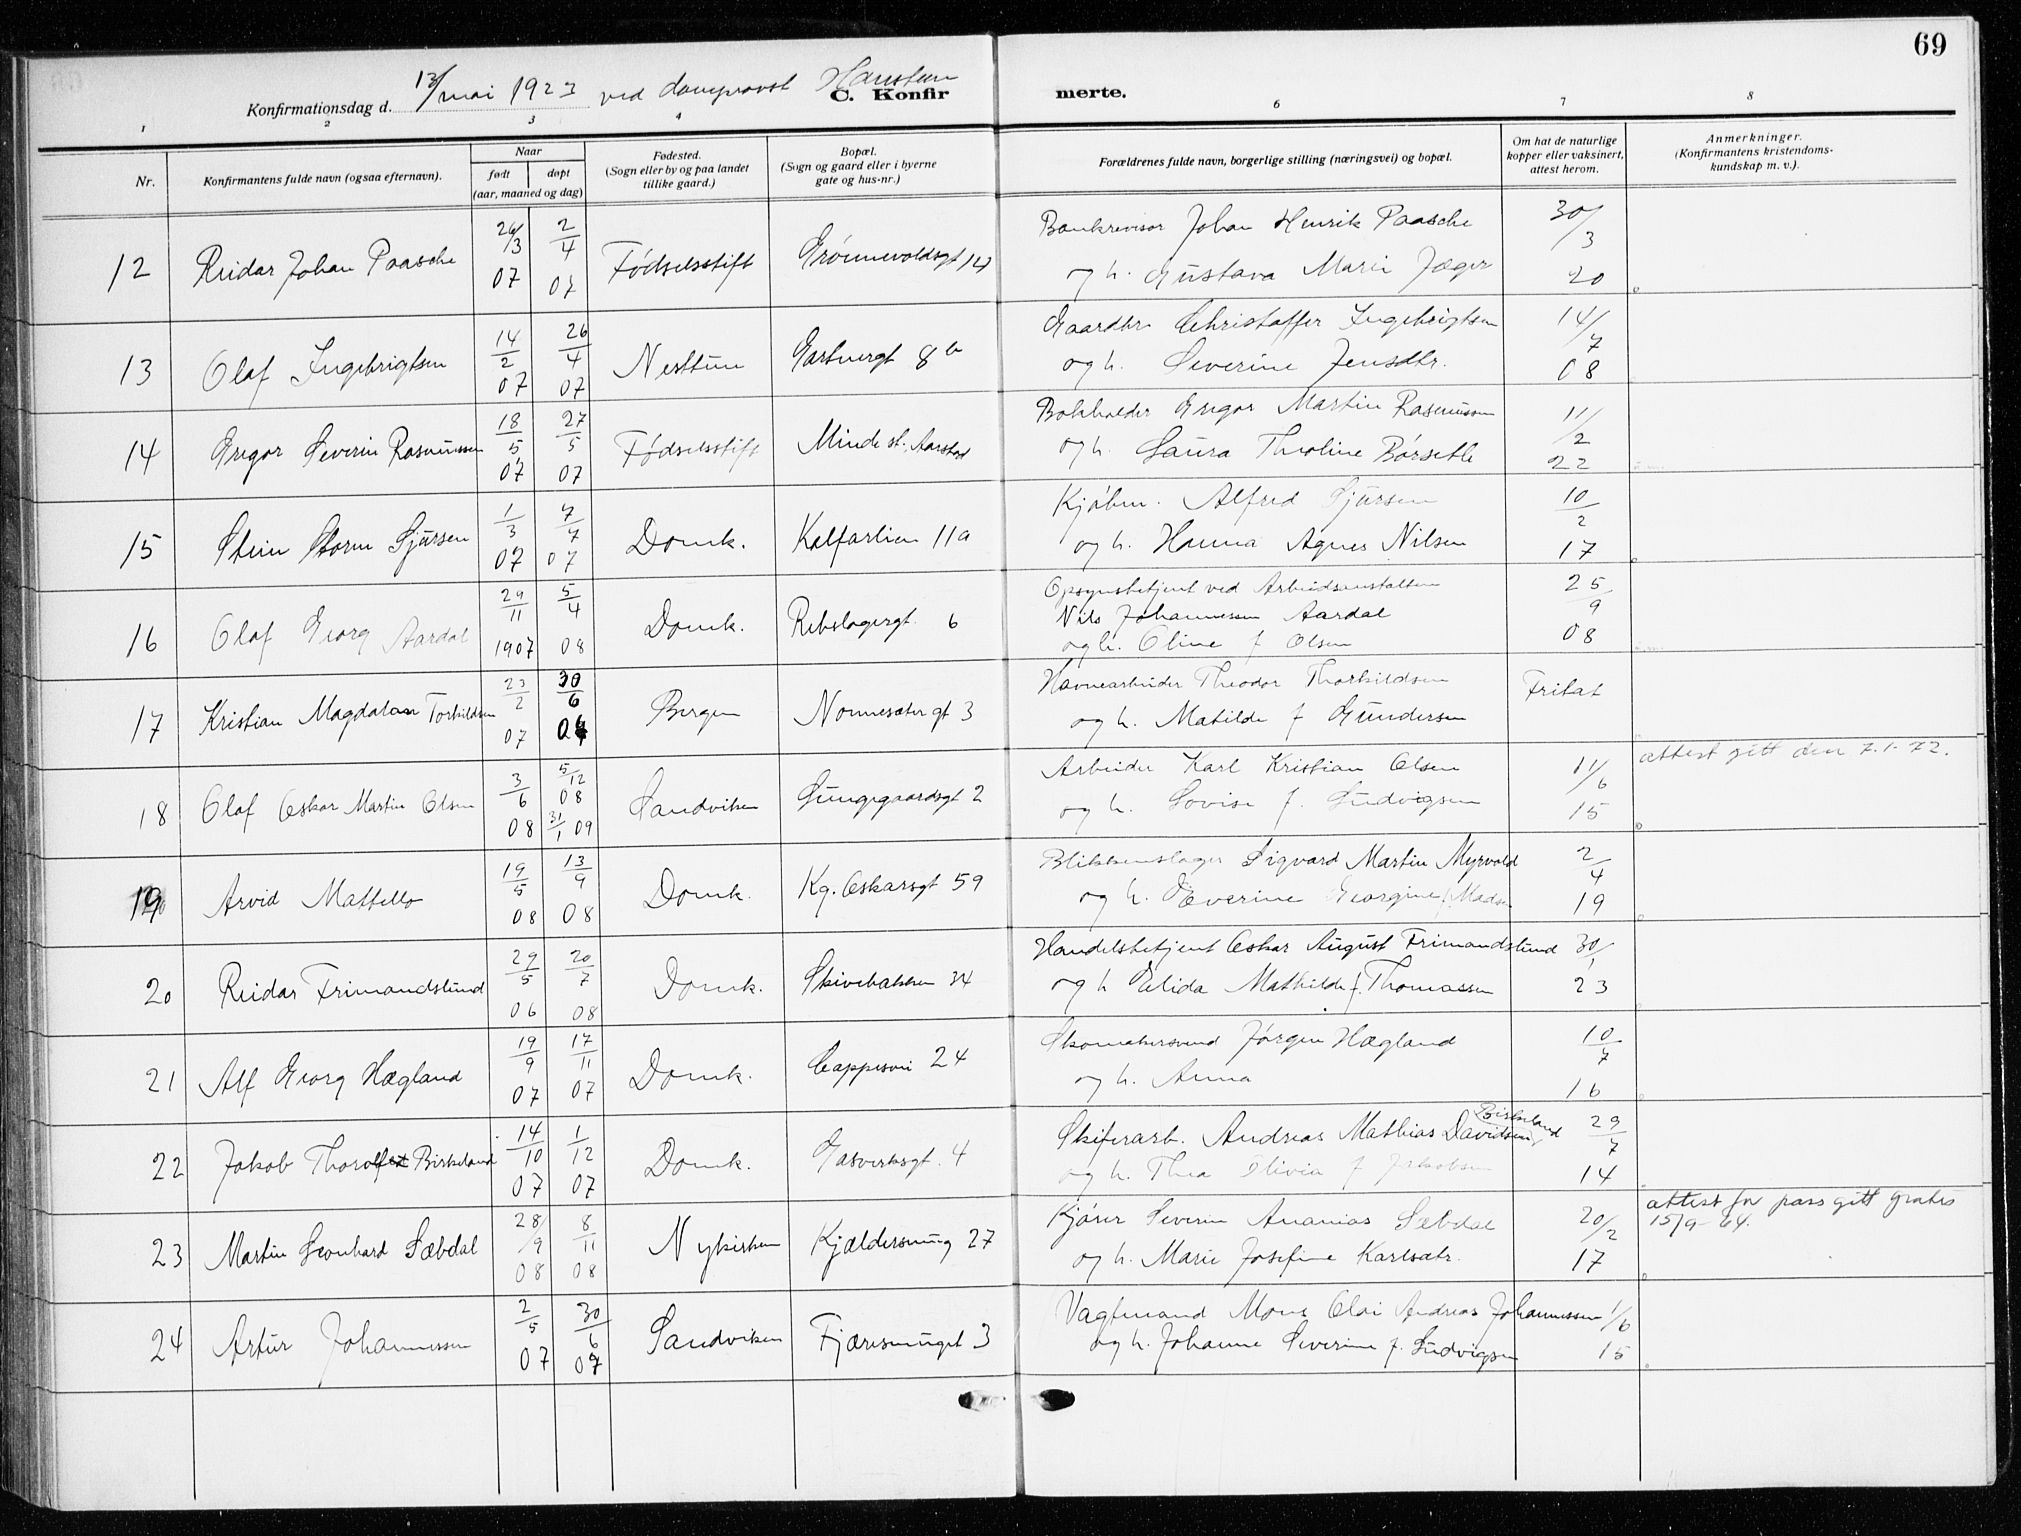 69
Konfirmationsdag d. 13/ mai 1923 ved domprovst Hansteen
C. Konfir merte.
1 2 3 4 6 7 8
Nr. Konfirmantens fulde navn (ogsaa efternavn). Naar født døpt (aar, maaned og dag) Fødested. (Sogn eller by og paa landet tillike gaard.) Bopæl. (Sogn og gaard eller i byerne gate og hus-nr.) Forældrenes fulde navn, borgerlige stilling (næringsvei) og bopæl. Om hat de naturlige kopper eller vaksinert, attest herom. Anmerkninger. (Konfirmantens kristendoms-kundskap m. v.).
12 Reidar Johan Paasche 26/3 07 2/4 07 Fødselsstift Grønnevoldsgt 14 Bankrevisor Johan Henrik Paasche 30/3 20
og h. Gustava Marie Jæger
13 Olaf Ingebrigtsen 14/2 07 26/4 07 Nesttun Gartnergt 8 b Gaardbr. Christoffer Ingebrigtsen 14/7 08
og h. Severine Jensdtr.
14 Gregor Severin Rasmussen 18/5 07 27/5 07 Fødselsstift Minde st. Aarstad Bokholder Gregor Martin Rasmussen 11/2 22
og h. Laura Theoline Børseth
15 Stein Storm Sjursen 1/3 07 7/7 07 Domk. Kalfarlien 11a Kjøbm. Alfred Sjursen 10/2 17
og h. Hanna Agnes Nilsen
16 Olaf Georg Aardal 29/11 1907 5/4 08 Domk. Rebslagergt. 6 Opsynsbetjent ved Arbeidsanstalten 25/9 08
Nils Johannessen Aardal
og h. Oline f Olsen
17 Kristian Magdalon Torkildsen 23/2 07 30/6 Bergen Nonnesæter gt 3 Havnearbeider Theodor Thorkildsen Fritat
og h. Matilde f Gundersen
18 Olaf Oskar Martin Olsen 3/6 08 5/12 08 31/1 09 Sandviken Ljunggaardsgt 2 Arbeider Karl Kristian Olsen 11/6 15 attest gitt den 7.1-72.
og h. Lovise f. Ludvigsen
19 Arvid Mattello 19/5 08 13/9 08 Domk. Kg. Oskarsgt 59 Blikkenslager Sigvard Martin Myrvold 2/4 19
og h. Severine Georgine f. Madsen
20 Reidar Frimandslund 29/5 06 20/7 08 Domk. Skivebakken 34 Handelsbetjent Oskar August Frimandslund 30/1 23
og h Elida Mathilde f. Thomassen
21 Alf Georg Hægland 19/9 07 17/11 07 Domk. Cappesvei 24 Skomakersvend Jørgen Hægland 10/7 16
og h. Anna
22 Jakob Thorolf Birkeland 14/10 07 1/12 07 Domk. Gasverksgt. 4 Skiferarb. Andreas Mathias Davidsen Birkeland 29/7 14
og h. Thea Olivia f Jakobsen
23 Martin Leonhard Sæbdal 28/9 08 8/11 08 Nykirken Kjældersmug 27 Kjører Severin Ananias Sebdal 20/2 17 attest for pass gitt gratis 15/9-64.
og h. Marie Josefine Karlsdtr.
24 Artur Johannessen 2/5 07 30/6 07 Sandviken Fjæresmuget 3 Vagtmand Mons Olai Andreas Johannessen 1/6 15
og h. Johanne Severine f. Ludvigsen